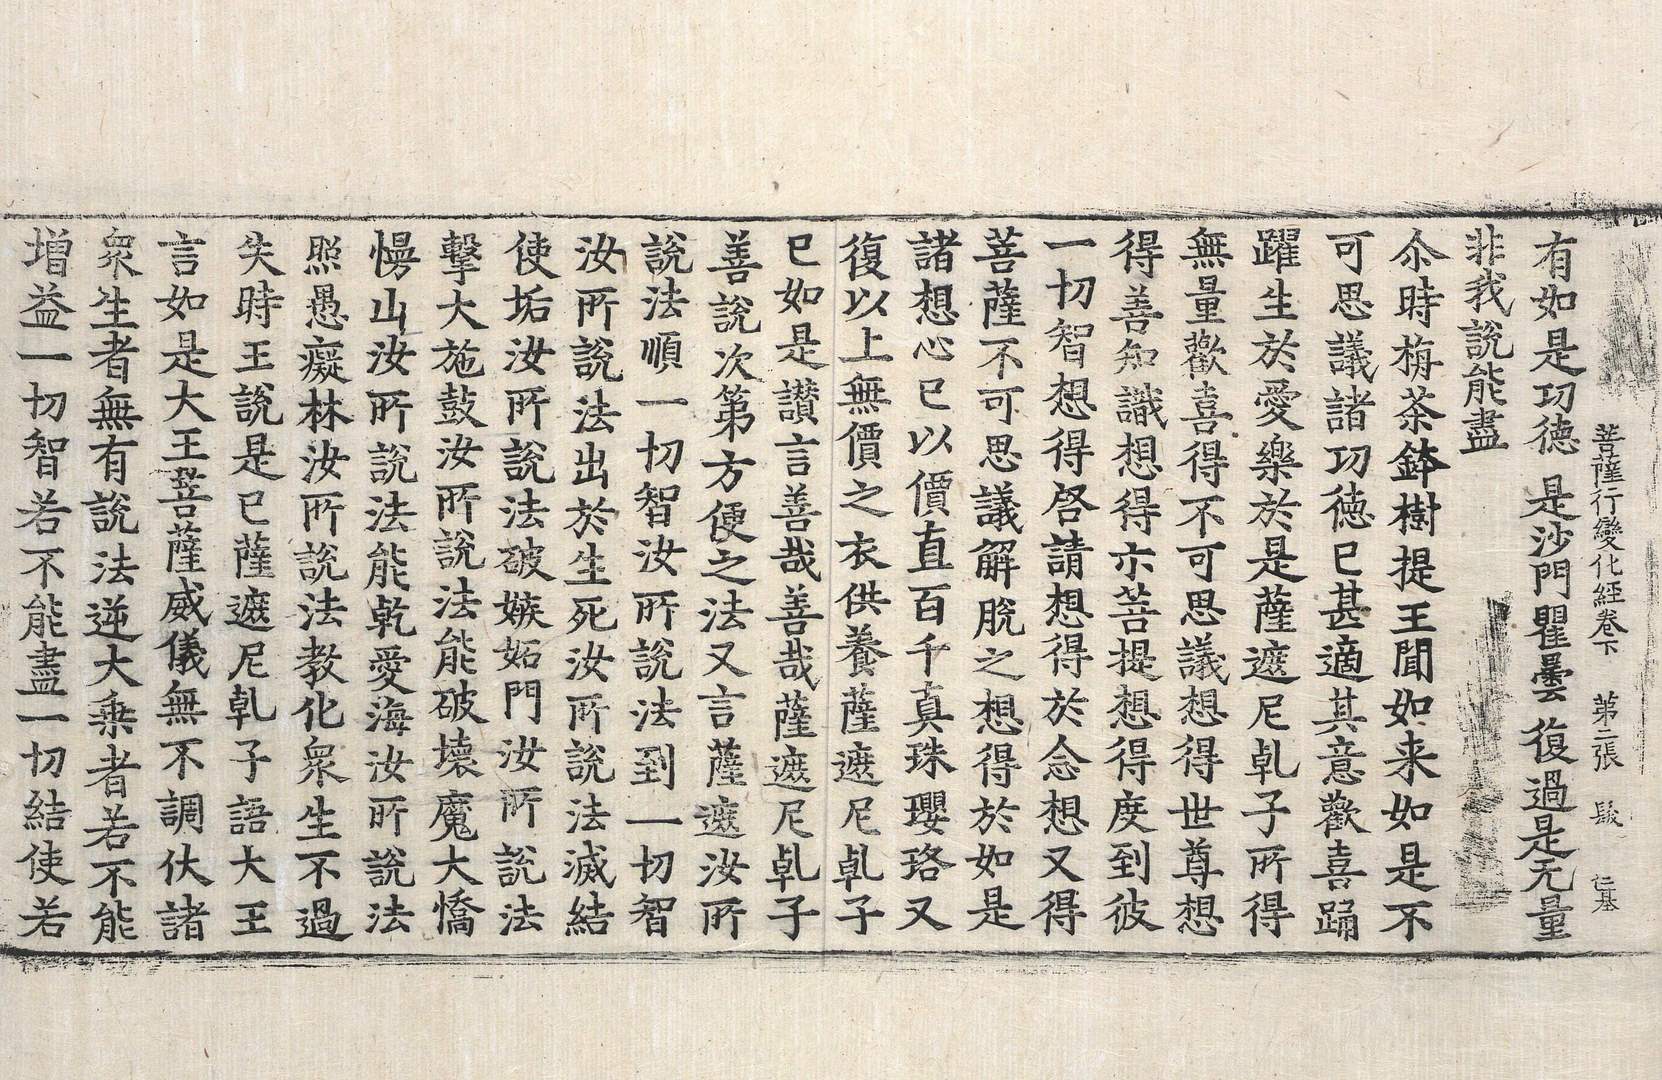 菩薩行變化經卷下 第二張 髮 仁基
有如是功德 是沙門瞿曇 復過是无量
非我說能盡
尒時栴荼鉢樹提王聞如来如是不
可思議諸功德已甚適其意歡喜踊
躍生於愛樂於是薩遮尼乹子所得
無量歡喜得不可思議想得世尊想
得善知識想得示菩提想得度到彼
一切智想得啓請想得於念想又得
菩薩不可思議解脫之想得於如是
諸想心已以價直百千真珠瓔珞又
復以上無價之衣供養薩遮尼乹子
已如是讃言善哉善哉薩遮尼乹子
善說次第方便之法又言薩遮汝所
說法順一切智汝所說法到一切智
汝所說法出於生死汝所說法滅結
使垢汝所說法破嫉妬門汝所說法
擊大施鼓汝所說法能破壞魔大憍
慢山汝所說法能乾愛海汝所說法
照愚癡林汝所說法教化衆生不過
失時王說是已薩遮尼乹子語大王
言如是大王菩薩威儀無不調伏諸
衆生者無有說法逆大乗者若不能
增益一切智若不能盡一切結使若